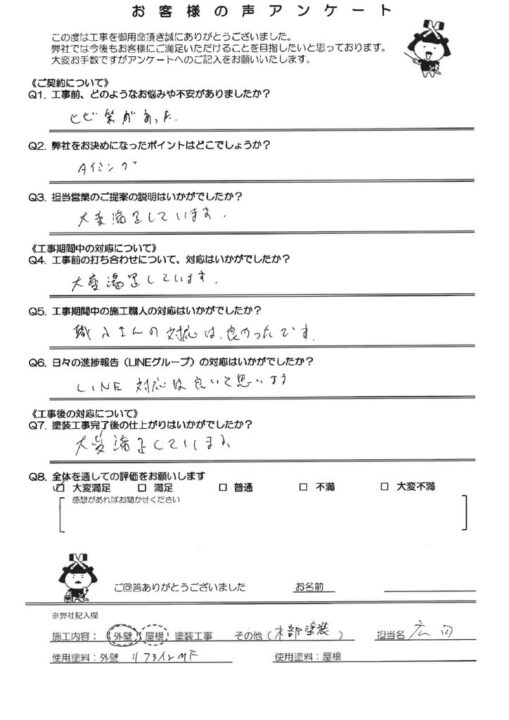 お客様の声アンケート
この度は工事を御用命頂き誠にありがとうございました。
弊社では今後もお客様にご満足いただけることを目指したいと思っております。
大変お手数ですがアンケートへのご記入をお願いいたします。
《ご契約について》
Q1. 工事前、どのようなお悩みや不安がありましたか?
ヒビ等があった.
Q2. 弊社をお決めになったポイントはどこでしょうか?
タイミング
Q3. 担当営業のご提案の説明はいかがでしたか?
大変満足しています.
《工事期間中の対応について》
Q4. 工事前の打ち合わせについて、対応はいかがでしたか?
大変満足しています.
Q5. 工事期間中の施工職人の対応はいかがでしたか?
職人さんの対応は、良かったです.
Q6. 日々の進捗報告(LINEグループ)の対応はいかがでしたか?
LINE 対応は良いと思います
《工事後の対応について》
Q7. 塗装工事完了後の仕上がりはいかがでしたか?
大変満足しています
Q8. 全体を通しての評価をお願いします
☑ 大変満足 □ 満足 □ 普通 □ 不満 □ 大変不満
感想があればお聞かせください
ご回答ありがとうございました お名前
※弊社記入欄
施工内容: 外壁 屋根 塗装工事 その他(木部塗装) 担当名
使用塗料:外壁 使用塗料:屋根